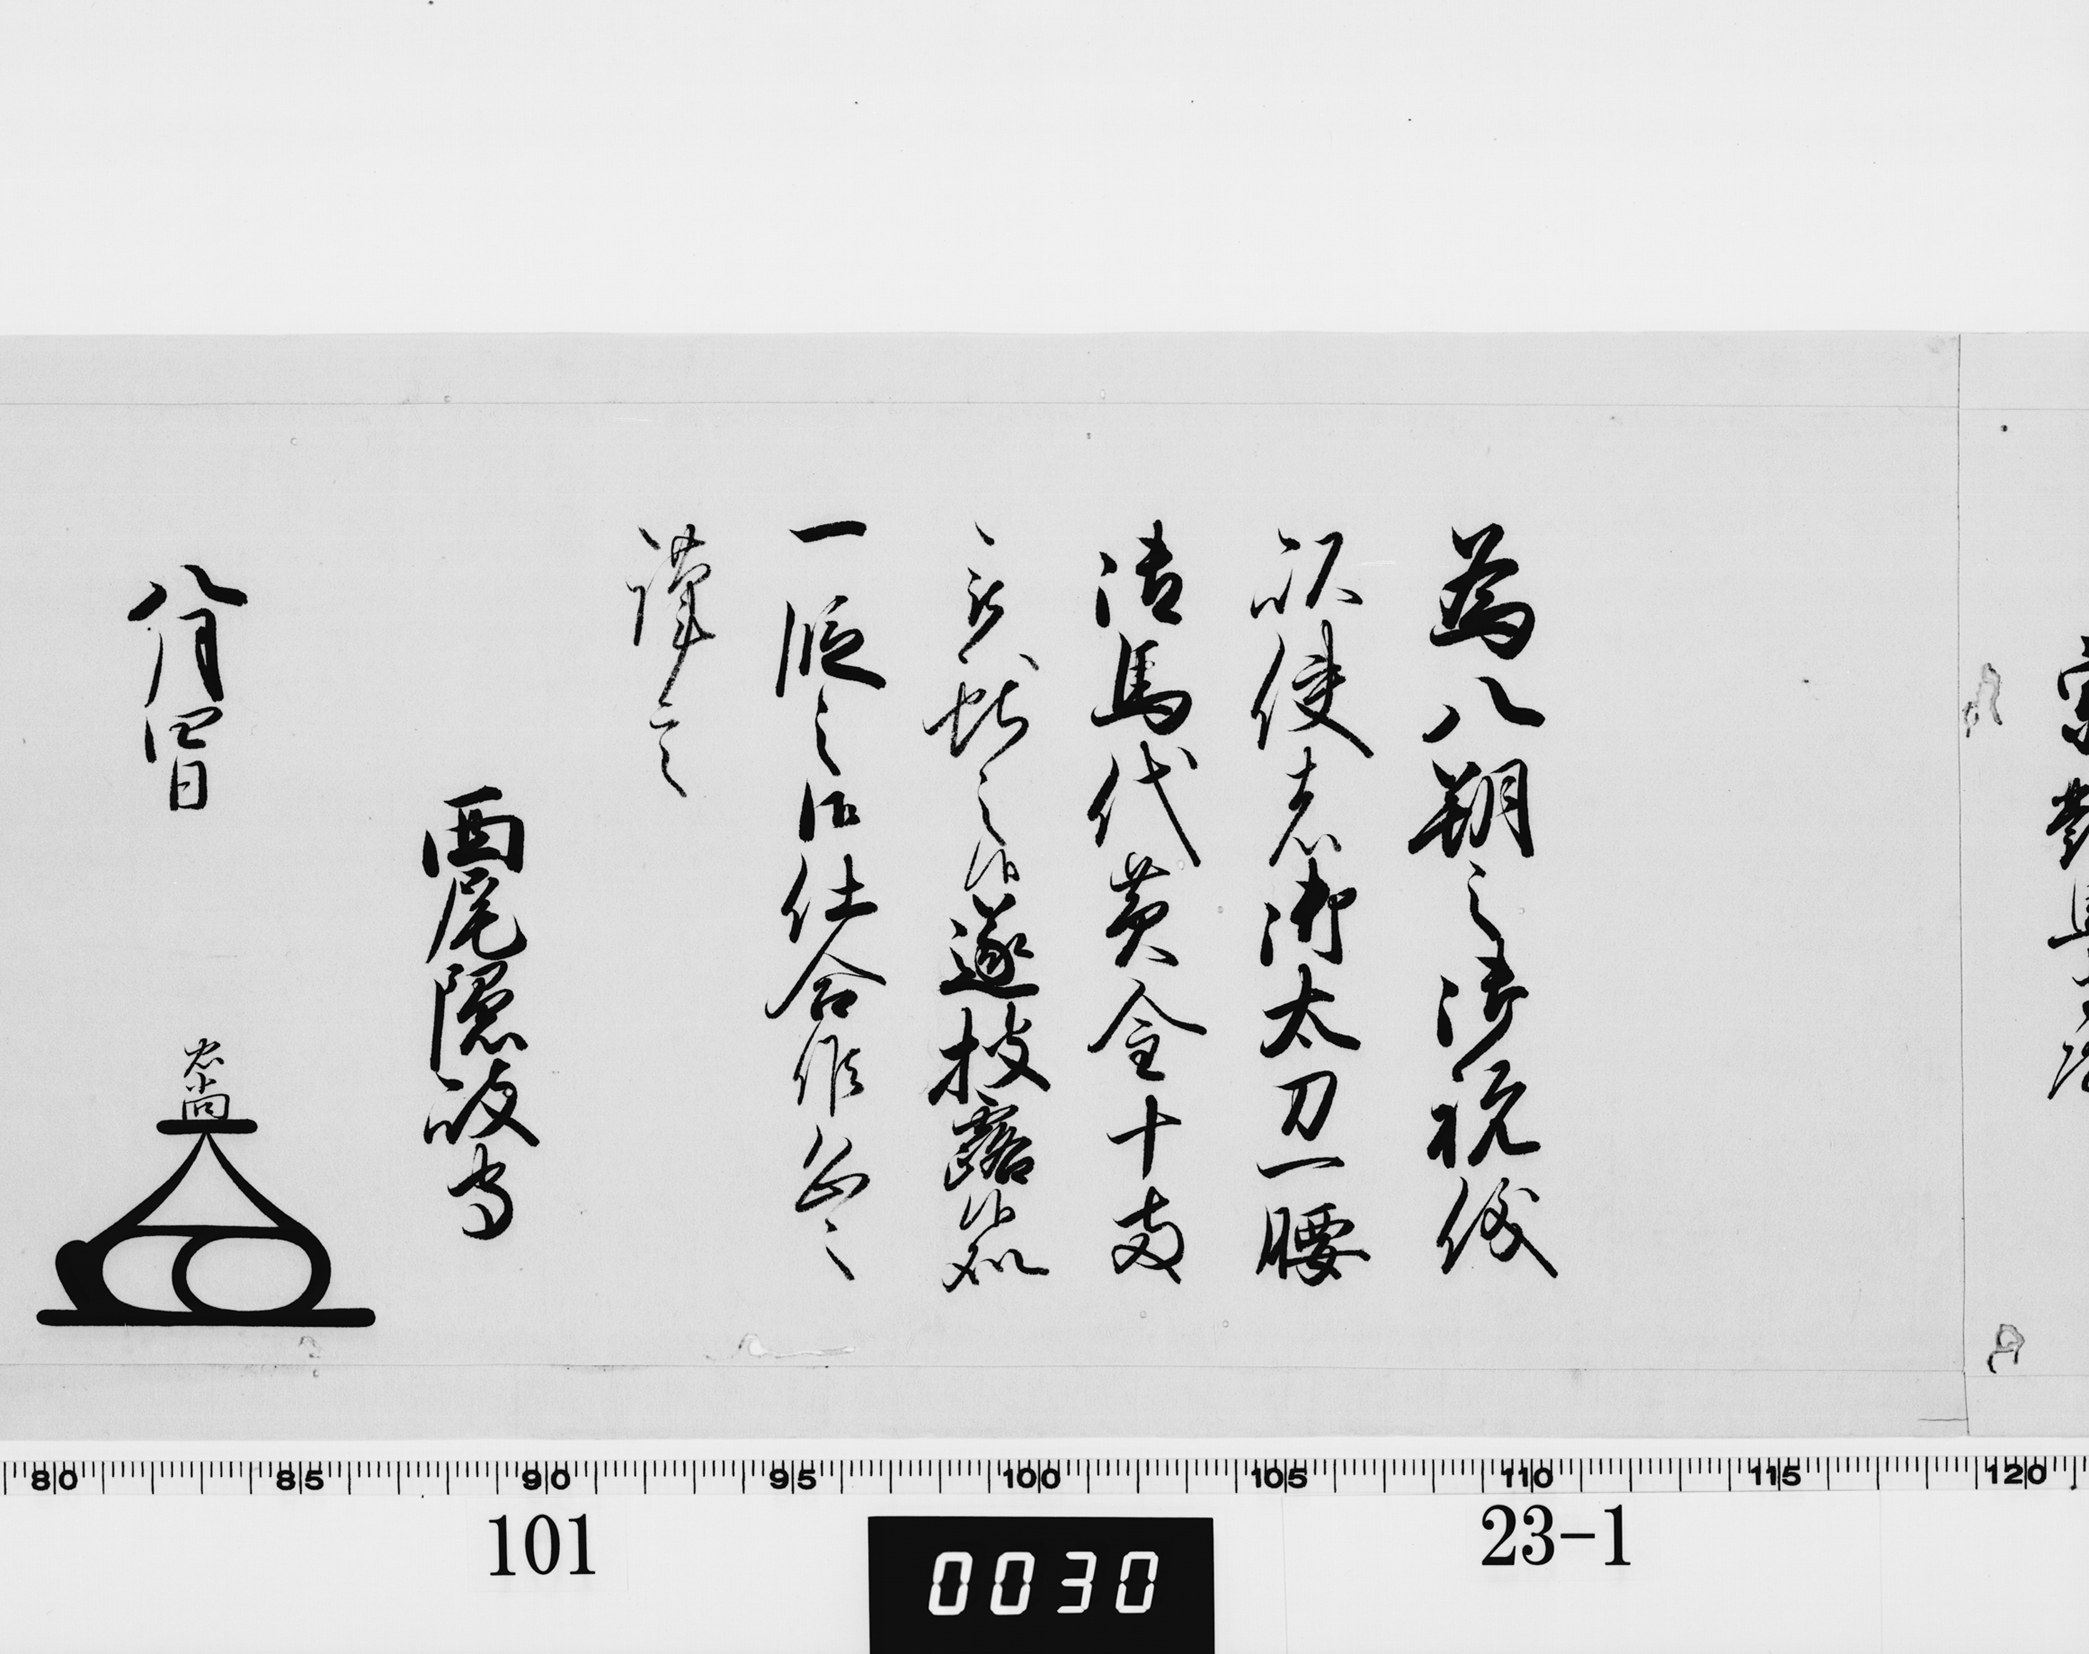 為八朔之御祝儀
以使者御太刀一腰
御馬代黄金十両
被献之候遂披露候処
一段之御仕合候恐々
謹言
西尾隠岐守
八月四日
忠尚
80 85 90 95 100 105 110 115 120
101
0030
23-1